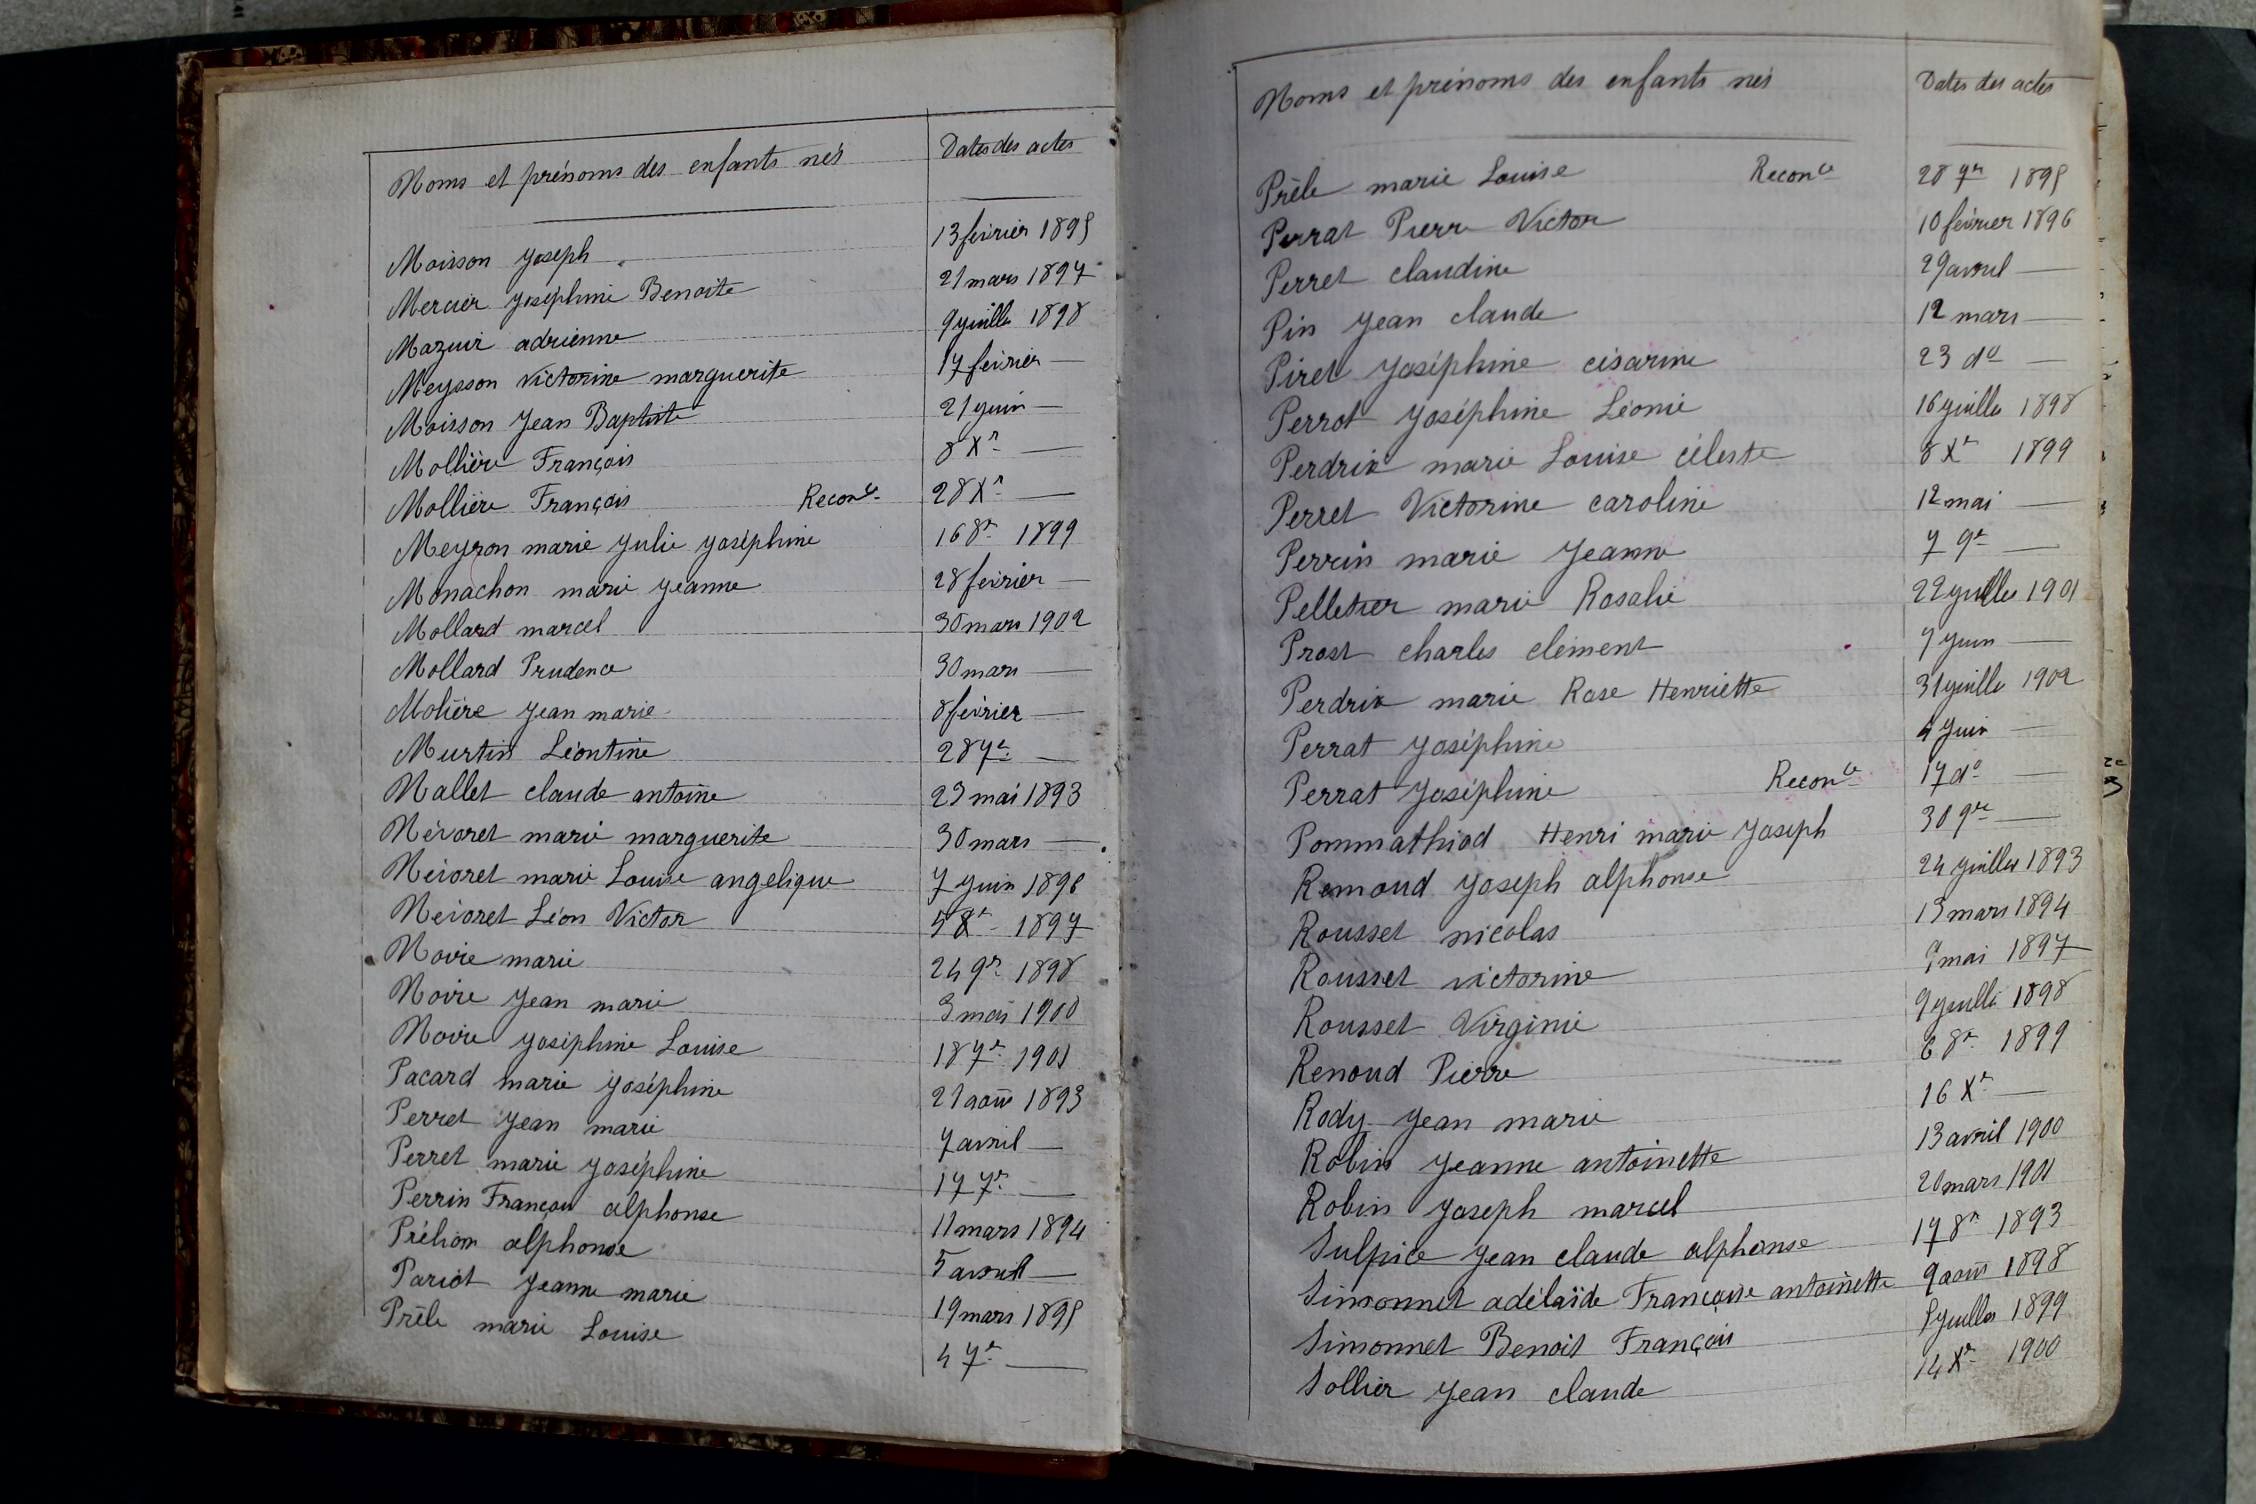 Noms et prénoms des enfants nés Dates des actes
Moisson Joseph 13 février 1895
Mercier Joséphine Benoite 21 mars 1897
Mazuir adrienne 9 juillet 1898
Meysson victorine marguerite 17 février —
Moisson Jean Baptiste 21 juin —
Mollière François 8 Xre —
Mollière François Reconce 28 Xre —
Meyron marie Julie Joséphine 16 8re 1899
Monachon marie Jeanne 28 février —
Mollard marcel 30 mars 1902
Mollard Prudence 30 mars —
Molière Jean marie 8 février —
Murtin Léontine 28 7re —
Nallet claude antoine 23 mai 1893
Névoret marie marguerite 30 mars —
Névoret marie Louise angelique 7 juin 1896
Névoret Léon Victor 5 Xre 1897
Noire marie 24 9re 1898
Noire Jean marie 3 mai 1900
Noire Joséphine Louise 18 7re 1901
Pacard marie Joséphine 21 août 1893
Perret Jean marie 7 avril —
Perret marie Joséphine 17 7re —
Perrin François alphonse 11 mars 1894
Prélion alphonse 5 avril —
Pariot Jeanne marie 19 mars 1895
Prèle marie Louise 4 7re —
Noms et prénoms des enfants nés Dates des actes
Prèle marie Louise Reconce 28 7re 1895
Perrat Pierre Victor 10 février 1896
Perret claudine 29 avril —
Pin Jean claude 12 mars —
Piret Joséphine césarine 23 do —
Perrot Joséphine Léonie 16 juillet 1898
Perdrix marie Louise céleste 8 Xre 1899
Perret Victorine caroline 12 mai —
Perrin marie Jeanne 7 9re —
Pelletier marie Rosalie 22 juillet 1901
Prost charles clément 9 juin —
Perdrix marie Rose Henriette 31 juillet 1902
Perrat Joséphine 4 juin —
Perrat Joséphine Reconce 17 do —
Pommathiod Henri marie Joseph 30 9re —
Remoud Joseph alphonse 24 juillet 1893
Rousset nicolas 13 mars 1894
Rousset victorine 9 mai 1897
Rousset Virginie 9 juillet 1898
Renoud Pierre 6 8re 1899
Rody Jean marie 16 Xre —
Robin Jeanne antoinette 13 avril 1900
Robin Joseph marcel 20 mars 1901
Sulpice Jean claude alphonse 17 8re 1893
Simonnet adélaïde Françoise antoinette 9 août 1898
Simonnet Benoit François juillet 1899
Sollier Jean claude 14 Xre 1900